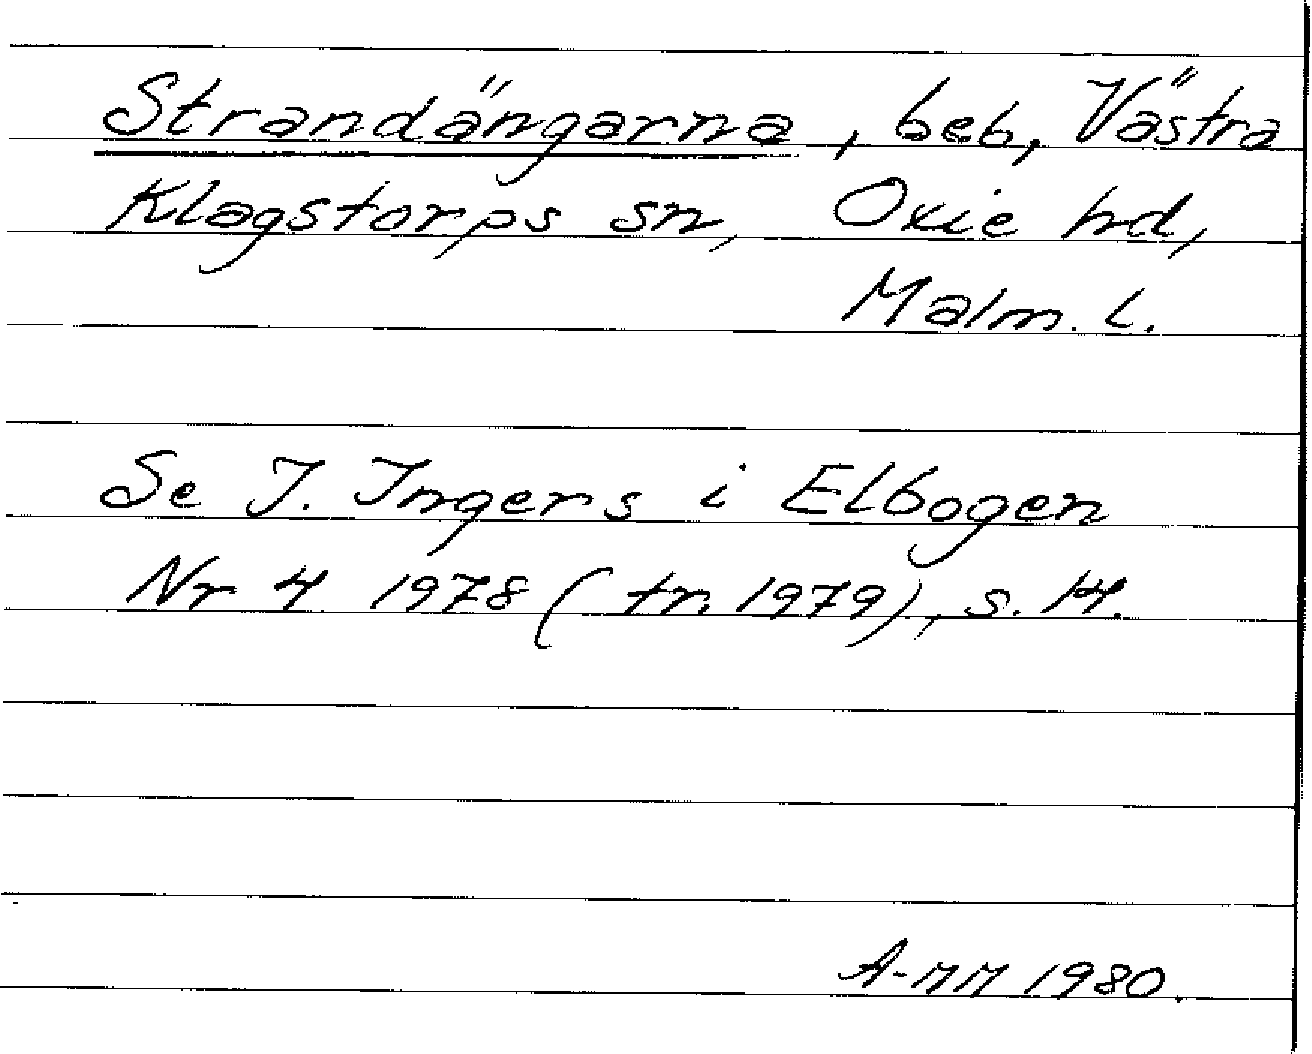 Strandängarna, beb, Västra
Klagstorps sn, Oxie hd,
Malm. l.
Se I. Ingers i Elbogen
Nr 4 1978 (tr. 1979), s. 14.
A-MM 1980.